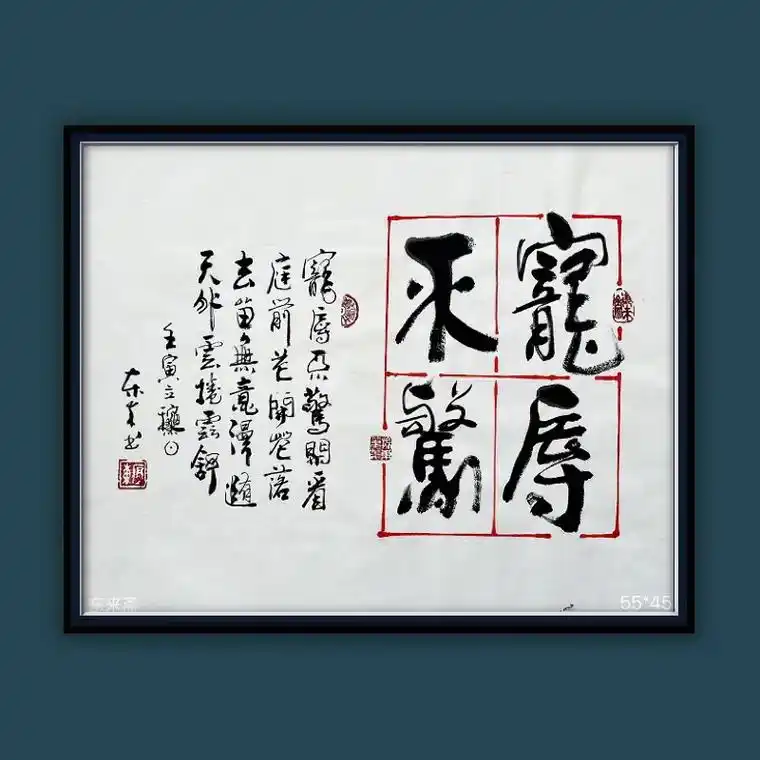 寵辱
不驚
寵辱不驚閑看
庭前花開花落
去留無意漫随
天外雲捲雲舒
壬寅立穐日
东来书
55*45